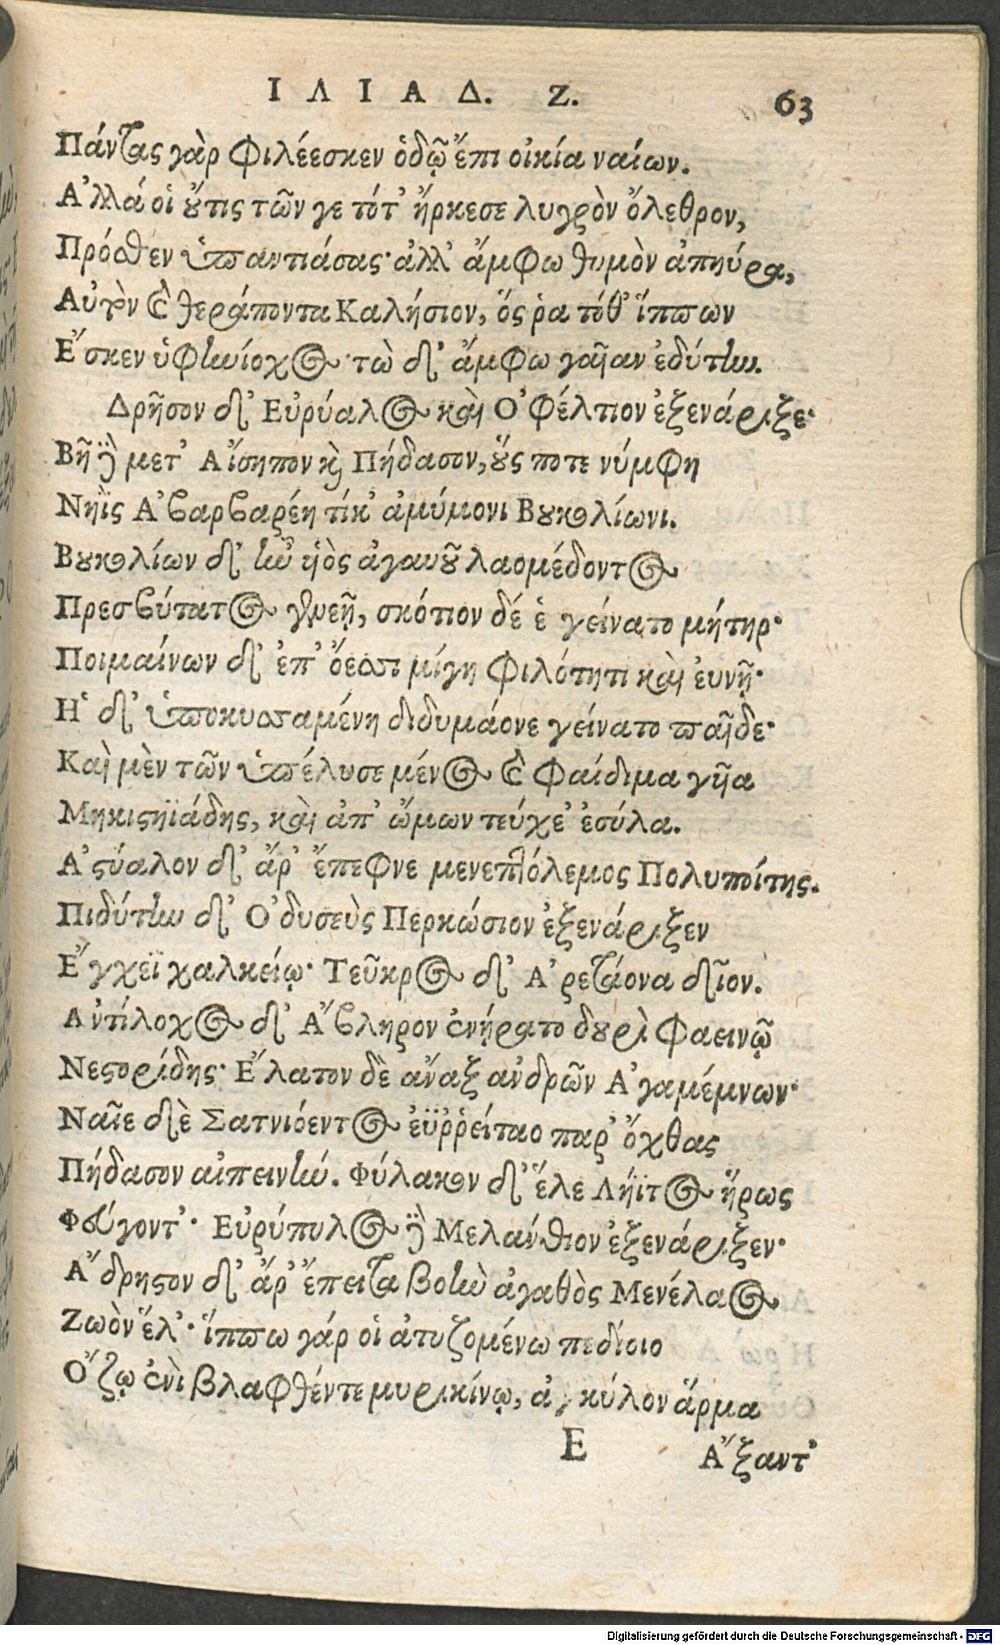 ΙΛΙΑΔ. Ζ. 63
Πάντας γὰρ φιλέεσκεν ὁδῷ ἔπι οἰκία ναίων.
Ἀλλά οἱ οὔτις τῶν γε τότ' ἤρκεσε λυγρὸν ὄλεθρον,
Πρόσθεν ὑπαντιάσας· ἀλλ' ἄμφω θυμὸν ἀπηύρα,
Αὐτὸν καὶ θεράποντα Καλήσιον, ὅς ῥα τόθ' ἵππων
Ἔσκεν ὑφηνίοχος· τὼ δ' ἄμφω γαῖαν ἐδύτην.
Δρῆσον δ' Εὐρύαλος καὶ Ὀφέλτιον ἐξενάριξε·
Βῆ δὲ μετ' Αἴσηπον καὶ Πήδασον, οὕς ποτε νύμφη
Νηῒς Ἀβαρβαρέη τέκ' ἀμύμονι Βουκολίωνι.
Βουκολίων δ' ἦν υἱὸς ἀγαυοῦ λαομέδοντος
Πρεσβύτατος γενεῇ, σκότιον δέ ἑ γείνατο μήτηρ·
Ποιμαίνων δ' ἐπ' ὄεσσι μίγη φιλότητι καὶ εὐνῇ·
Ἡ δ' ὑποκυσσαμένη διδυμάονε γείνατο παῖδε·
Καὶ μὲν τῶν ὑπέλυσε μένος καὶ φαίδιμα γυῖα
Μηκιστηϊάδης, καὶ ἀπ' ὤμων τεύχε' ἐσύλα.
Ἀστύαλον δ' ἄρ' ἔπεφνε μενεπτόλεμος Πολυποίτης.
Πιδύτην δ' Ὀδυσεὺς Περκώσιον ἐξενάριξεν
Ἔγχεϊ χαλκείῳ· Τεῦκρος δ' Ἀρετάονα δῖον.
Ἀντίλοχος δ' Ἄβληρον ἐνήρατο δουρὶ φαεινῷ
Νεστορίδης· Ἔλατον δὲ ἄναξ ἀνδρῶν Ἀγαμέμνων·
Ναῖε δὲ Σατνιόεντος ἐϋῤῥείταο παρ' ὄχθας
Πήδασον αἰπεινήν. Φύλακον δ' ἕλε Λήϊτος ἥρως
Φεύγοντ'· Εὐρύπυλος δὲ Μελάνθιον ἐξενάριξεν·
Ἄδρηστον δ' ἄρ' ἔπειτα βοὴν ἀγαθὸς Μενέλαος
Ζωὸν ἕλ'· ἵππω γάρ οἱ ἀτυζομένω πεδίοιο
Ὄζῳ ἐνὶ βλαφθέντε μυρικίνῳ, ἀγκύλον ἅρμα
Ε Ἄξαντ'
Digitalisierung gefördert durch die Deutsche Forschungsgemeinschaft - DFG